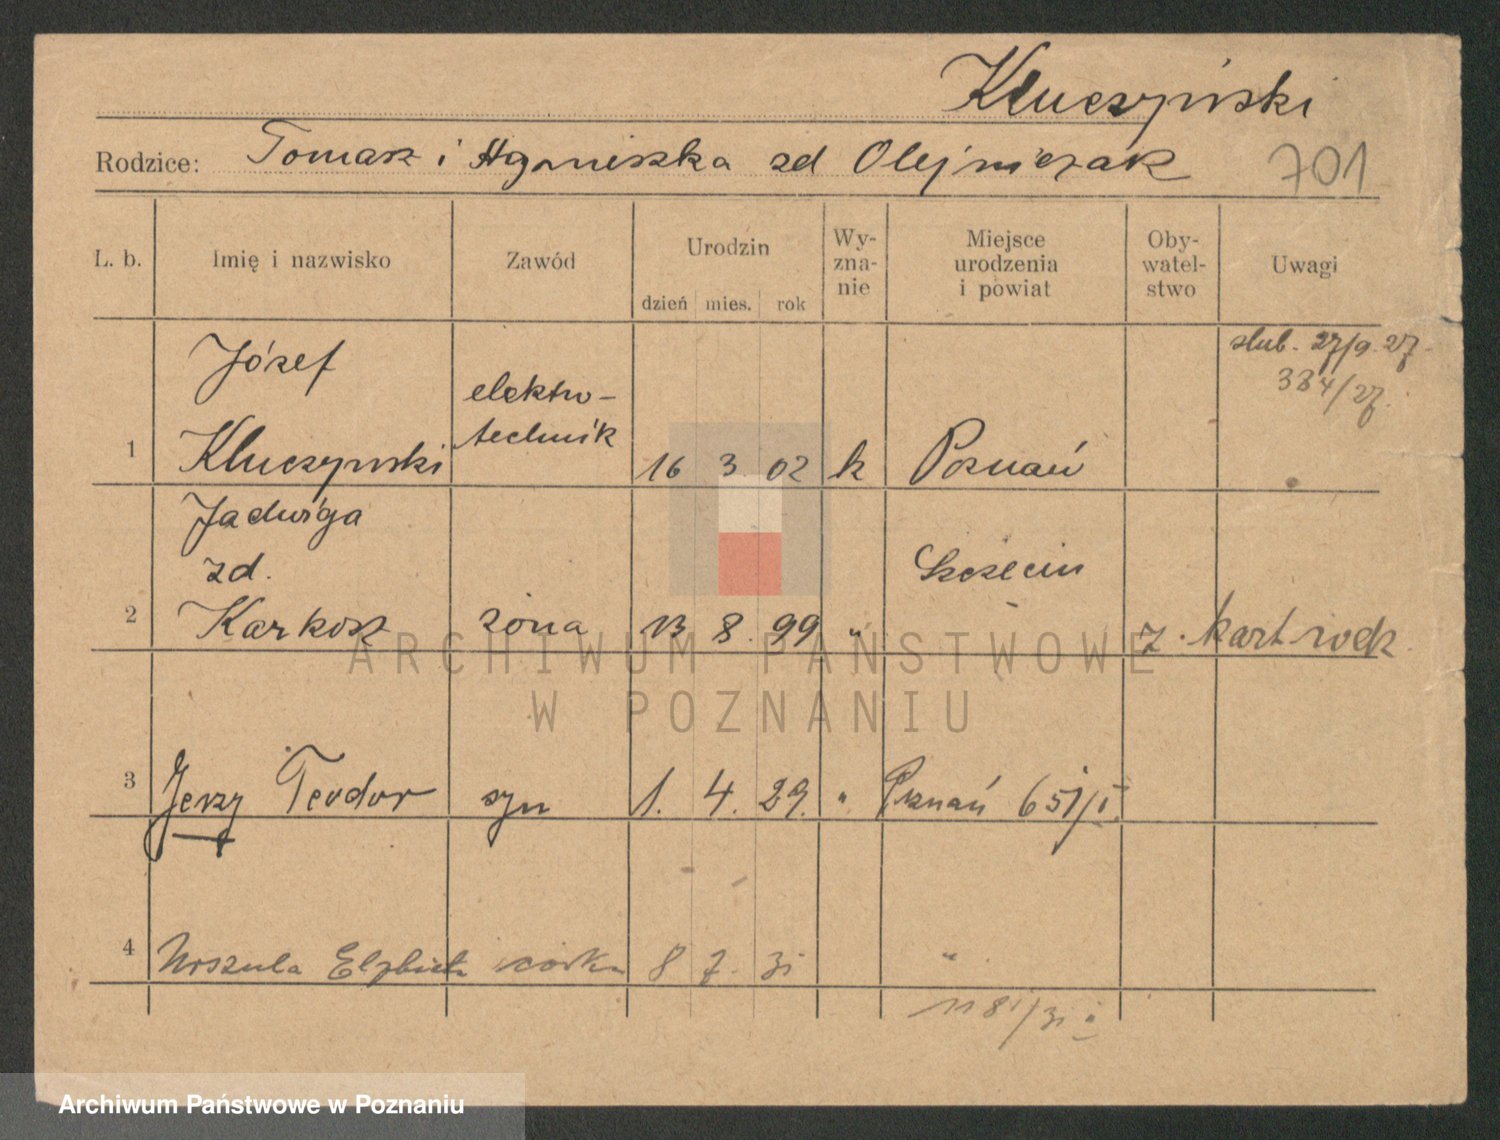 Kluczyński
Rodzice: Tomasz i Agnieszka zd Olejniczak 701
L. b. Imię i nazwisko Zawód Urodzin dzień mies. rok Wy-zna-nie Miejsce urodzenia i powiat Oby-watel-stwo Uwagi
ślub. 27/9.27.
384/27.
Józef
elektro-
technik
1 Kluczyński 16 3 02 k Poznań
Jadwiga
zd. Szczecin
2 Karkosz żona 13 8. 99 " z. kart rodz.
ARCHIWUM PAŃSTWOWE
W POZNANIU
3 Jerzy Teodor syn 1. 4. 29. " Poznań 651/I.
4 Urszula Elżbieta córka 8 7. 31 "
1181/31
Archiwum Państwowe w Poznaniu